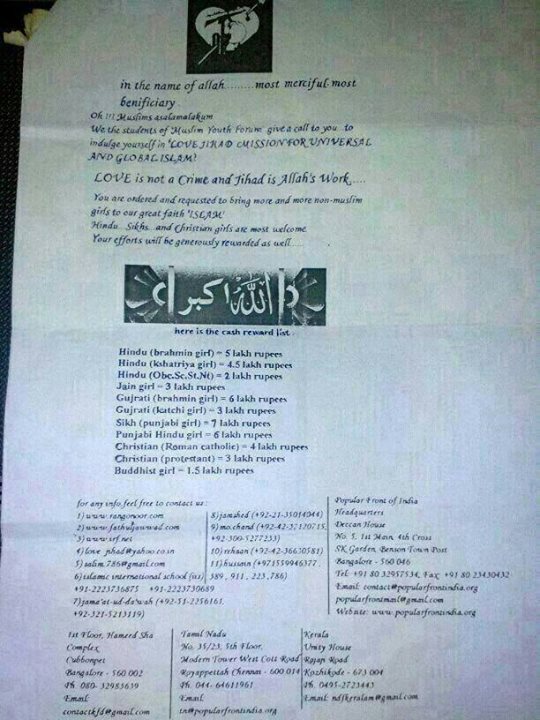 in the name of allah.........most merciful-most
benificiary
Oh !!! Muslims asalamalakum
We the students of Muslim Youth Forum give a call to you to
indulge yourself in 'LOVE JIHAD MISSION FOR UNIVERSAL
AND GLOBAL ISLAM'!
LOVE is not a Crime and Jihad is Allah's Work....
You are ordered and requested to bring more and more non-muslim
girls to our great faith 'ISLAM'
Hindu...Sikhs...and Christian girls are most welcome.
Your efforts will be generously rewarded as well.....
الله اكبر
here is the cash reward list
Hindu (brahmin girl) = 5 lakh rupees
Hindu (kshatriya girl) = 4.5 lakh rupees
Hindu (Obc.Sc.St.Nt) = 2 lakh rupees
Jain girl = 3 lakh rupees
Gujrati (brahmin girl) = 6 lakh rupees
Gujrati (katchi girl) = 3 lakh rupees
Sikh (punjabi girl) = 7 lakh rupees
Punjabi Hindu girl = 6 lakh rupees
Christian (Roman catholic) = 4 lakh rupees
Christian (protestant) = 3 lakh rupees
Buddhist girl = 1.5 lakh rupees
for any info feel free to contact us:
1) www.rangonoor.com
2) www.fathuljawwad.com
3) www.irf.net
4) love_jihad@yahoo.co.in
5) salim.786@gmail.com
6) islamic international school (iis)
+91-2223736875 +91-2223730689
7) jama'at-ud-da'wah (+92-51-2256161,
+92-321-5213119)
8) jamshed (+92-21-35014044)
9) mo.chand (+92-42-37120715,
+92-300-5277233)
10) rehaan (+92-42-36630581)
11) hussain (+971559946377,
389, 911, 223, 786)
Popular Front of India
Headquarters
Deccan House
No. 5, 1st Main, 4th Cross
SK Garden, Benson Town Post
Bangalore - 560 046
Tel: +91 80 32957534, Fax: +91 80 23430432
Email: contact@popularfrontindia.org
popularfrontmail@gmail.com
Website: www.popularfrontindia.org
1st Floor, Hameed Sha
Complex
Cubbonpet
Bangalore - 560 002
Ph. 080- 32983639
Email:
contactkfd@gmail.com
Tamil Nadu
No. 35/23, 5th Floor,
Modern Tower West Cott Road
Royappettah Chennai - 600 014
Ph. 044- 64611961
Email:
tn@popularfrontindia.org
Kerala
Unity House
Rajaji Road
Kozhikode - 673 004
Ph. 0495-2723443
Email: ndfkeralam@gmail.com